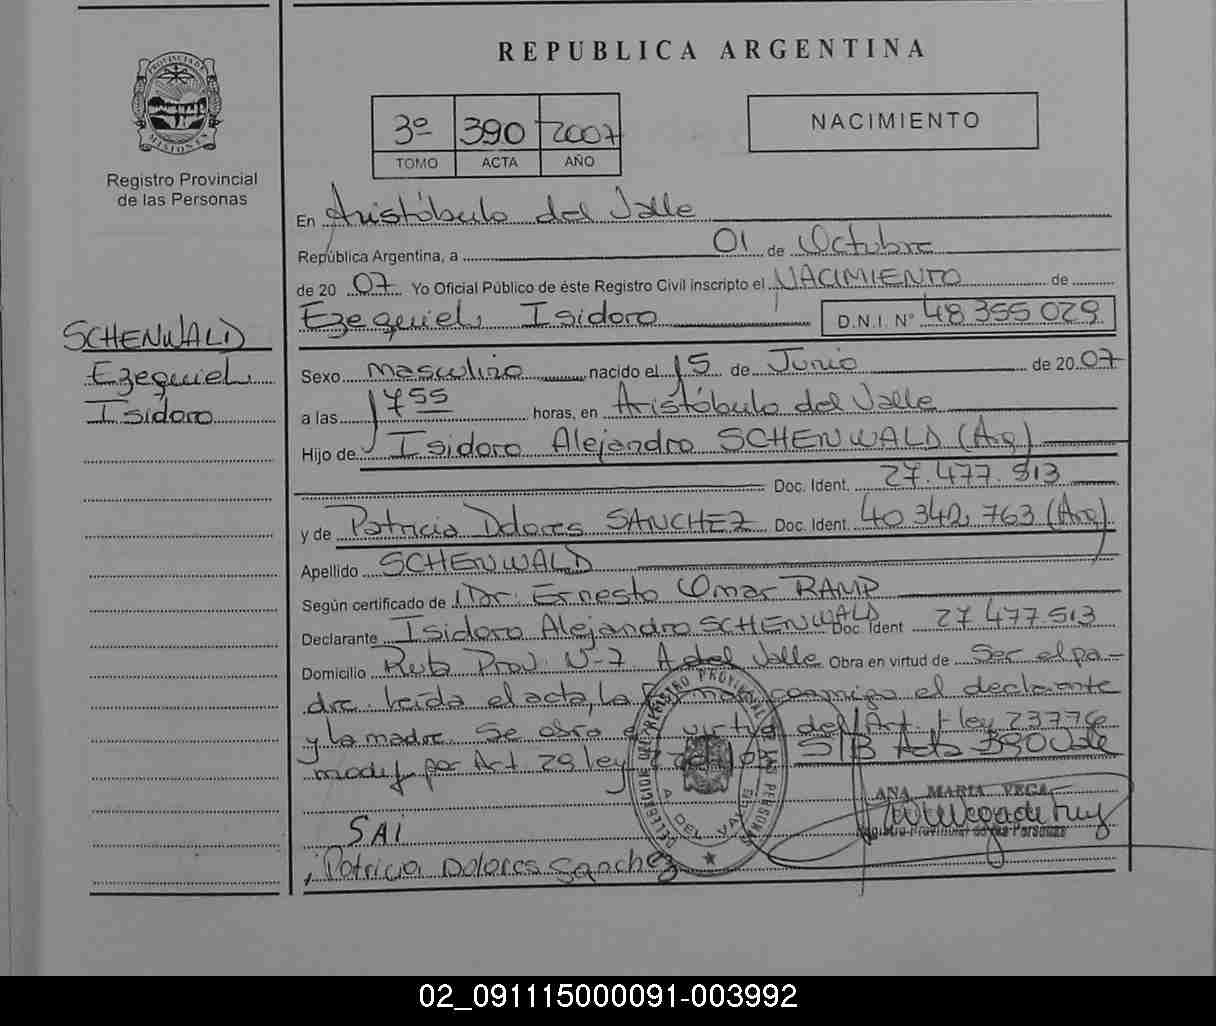 REPUBLICA ARGENTINA
PROVINCIA DE MISIONES
Registro Provincial
de las Personas
3º 390 2007
TOMO ACTA AÑO
NACIMIENTO
En Aristóbulo del Valle
República Argentina, a 01 de Octubre
de 20 07 Yo Oficial Público de éste Registro Civil inscripto el NACIMIENTO de
Ezequiel Isidoro D.N.I. Nº 48 355 029
SCHENWALD
Ezequiel
Isidoro
Sexo masculino nacido el 15 de Junio de 20 07
a las 1755 horas, en Aristóbulo del Valle
Hijo de Isidoro Alejandro SCHENWALD (Arg)
Doc. Ident. 27.477.513
y de Patricia Dolores SANCHEZ Doc. Ident. 40 342 763 (Arg)
Apellido SCHENWALD
Según certificado de Dr. Ernesto Omar RAMP
Declarante Isidoro Alejandro SCHENWALD Doc Ident 27 477.513
Domicilio Ruta Prov. N-7 A del Valle Obra en virtud de Ser el pa-
dre. Leída el acta, la conmigo el declarante
y la madre. Se obra en virtud del Art. 1 ley 23776
modif por Art 29 ley S/B Acta 390 Vale
ANA MARIA VEGA
Registro Provincial de las Personas
DELEGACION DEL REGISTRO PROVINCIAL DE LAS PERSONAS
A DEL VALLE
SAI
Patricia Dolores Sanchez
02_091115000091-003992